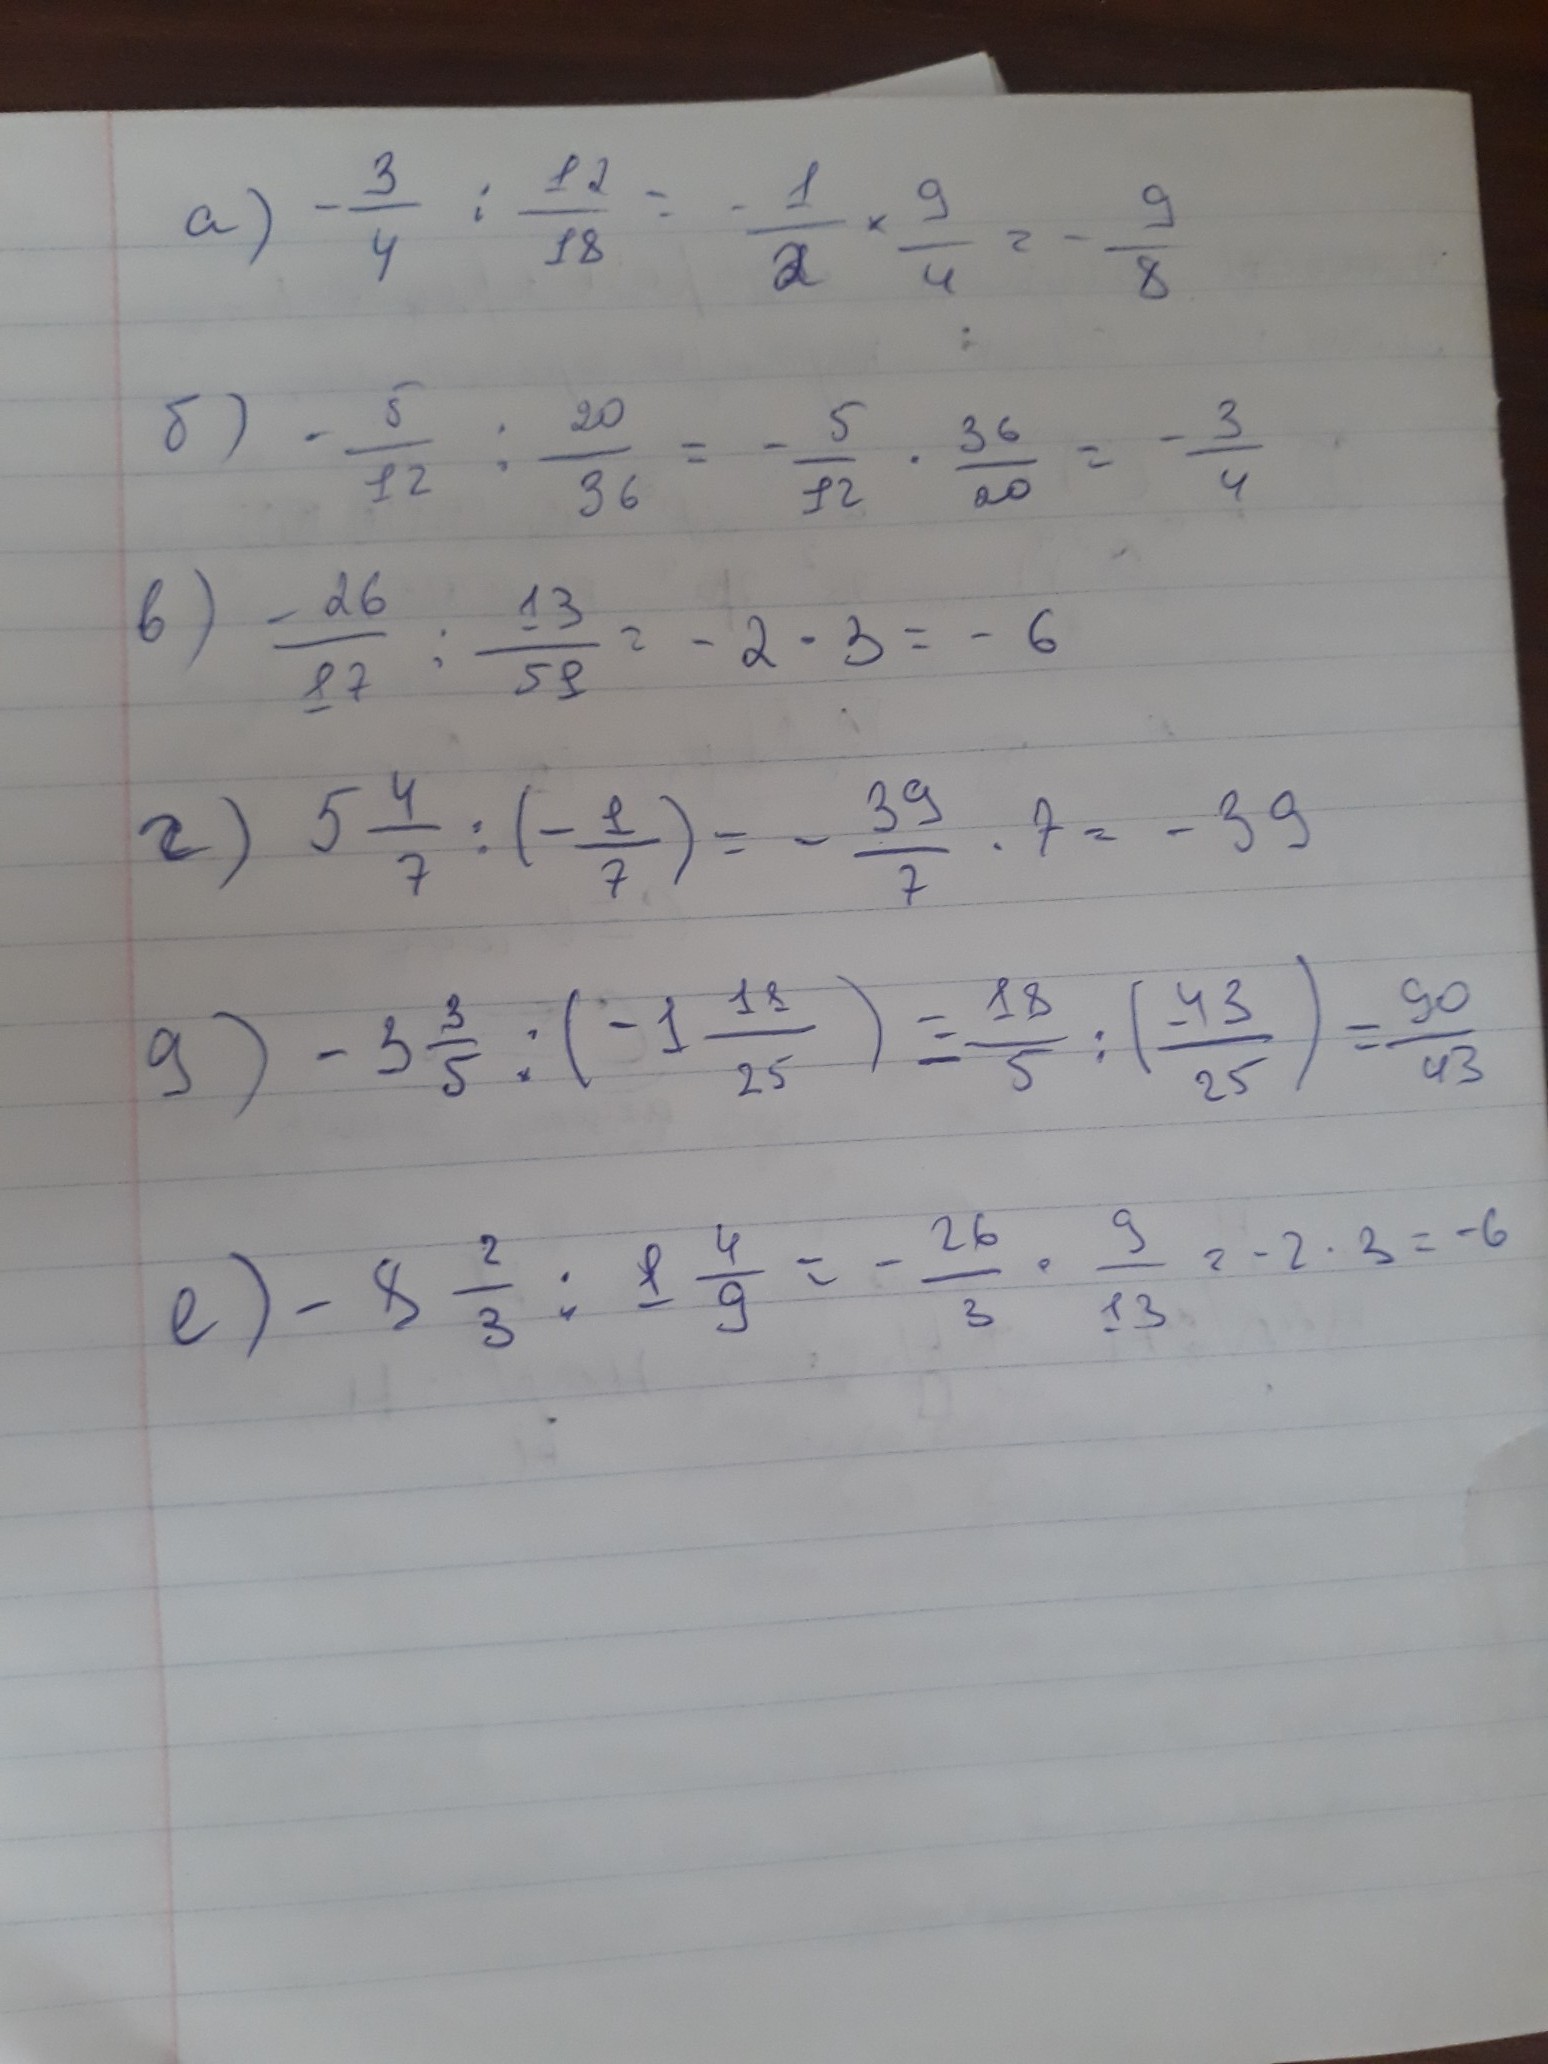 а) -3/4 : 12/18 = -1/2 × 9/4 = -9/8
б) -5/12 : 20/36 = -5/12 · 36/20 = -3/4
в) -26/17 : 13/51 = -2 · 3 = -6
г) 5 4/7 : (-1/7) = -39/7 · 7 = -39
д) -3 3/5 : (-1 18/25) = 18/5 : (43/25) = 90/43
е) -8 2/3 : 1 4/9 = -26/3 · 9/13 = -2 · 3 = -6